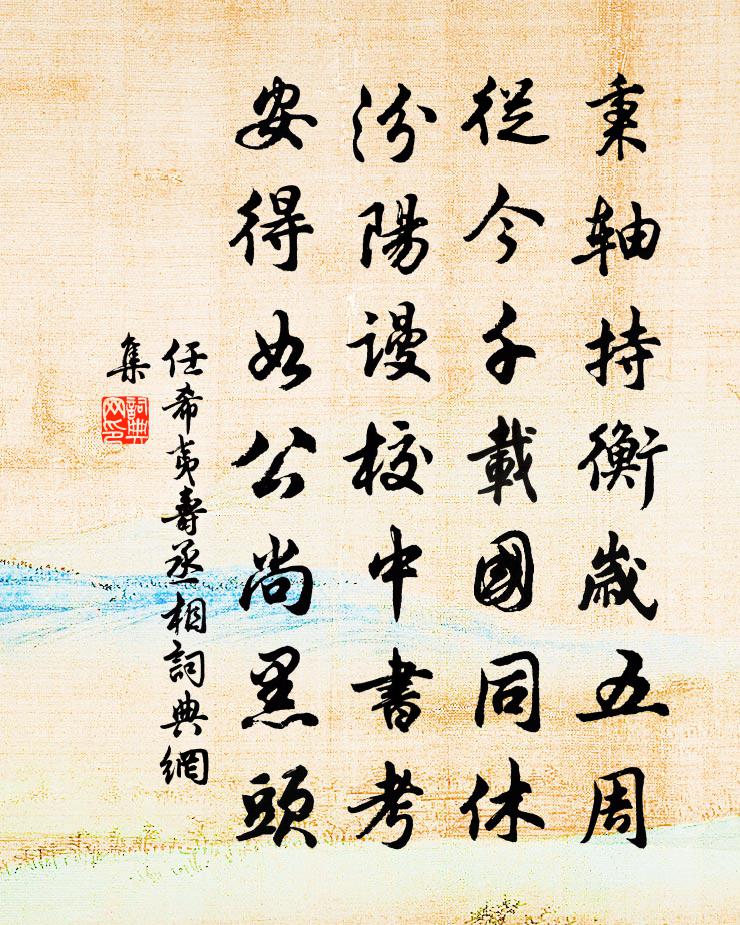 秉軸持衡歲五周
從今千載國同休
汾陽謾校中書考
安得如公尚黑頭
任希夷壽丞相詞典網
集
詞典
网印